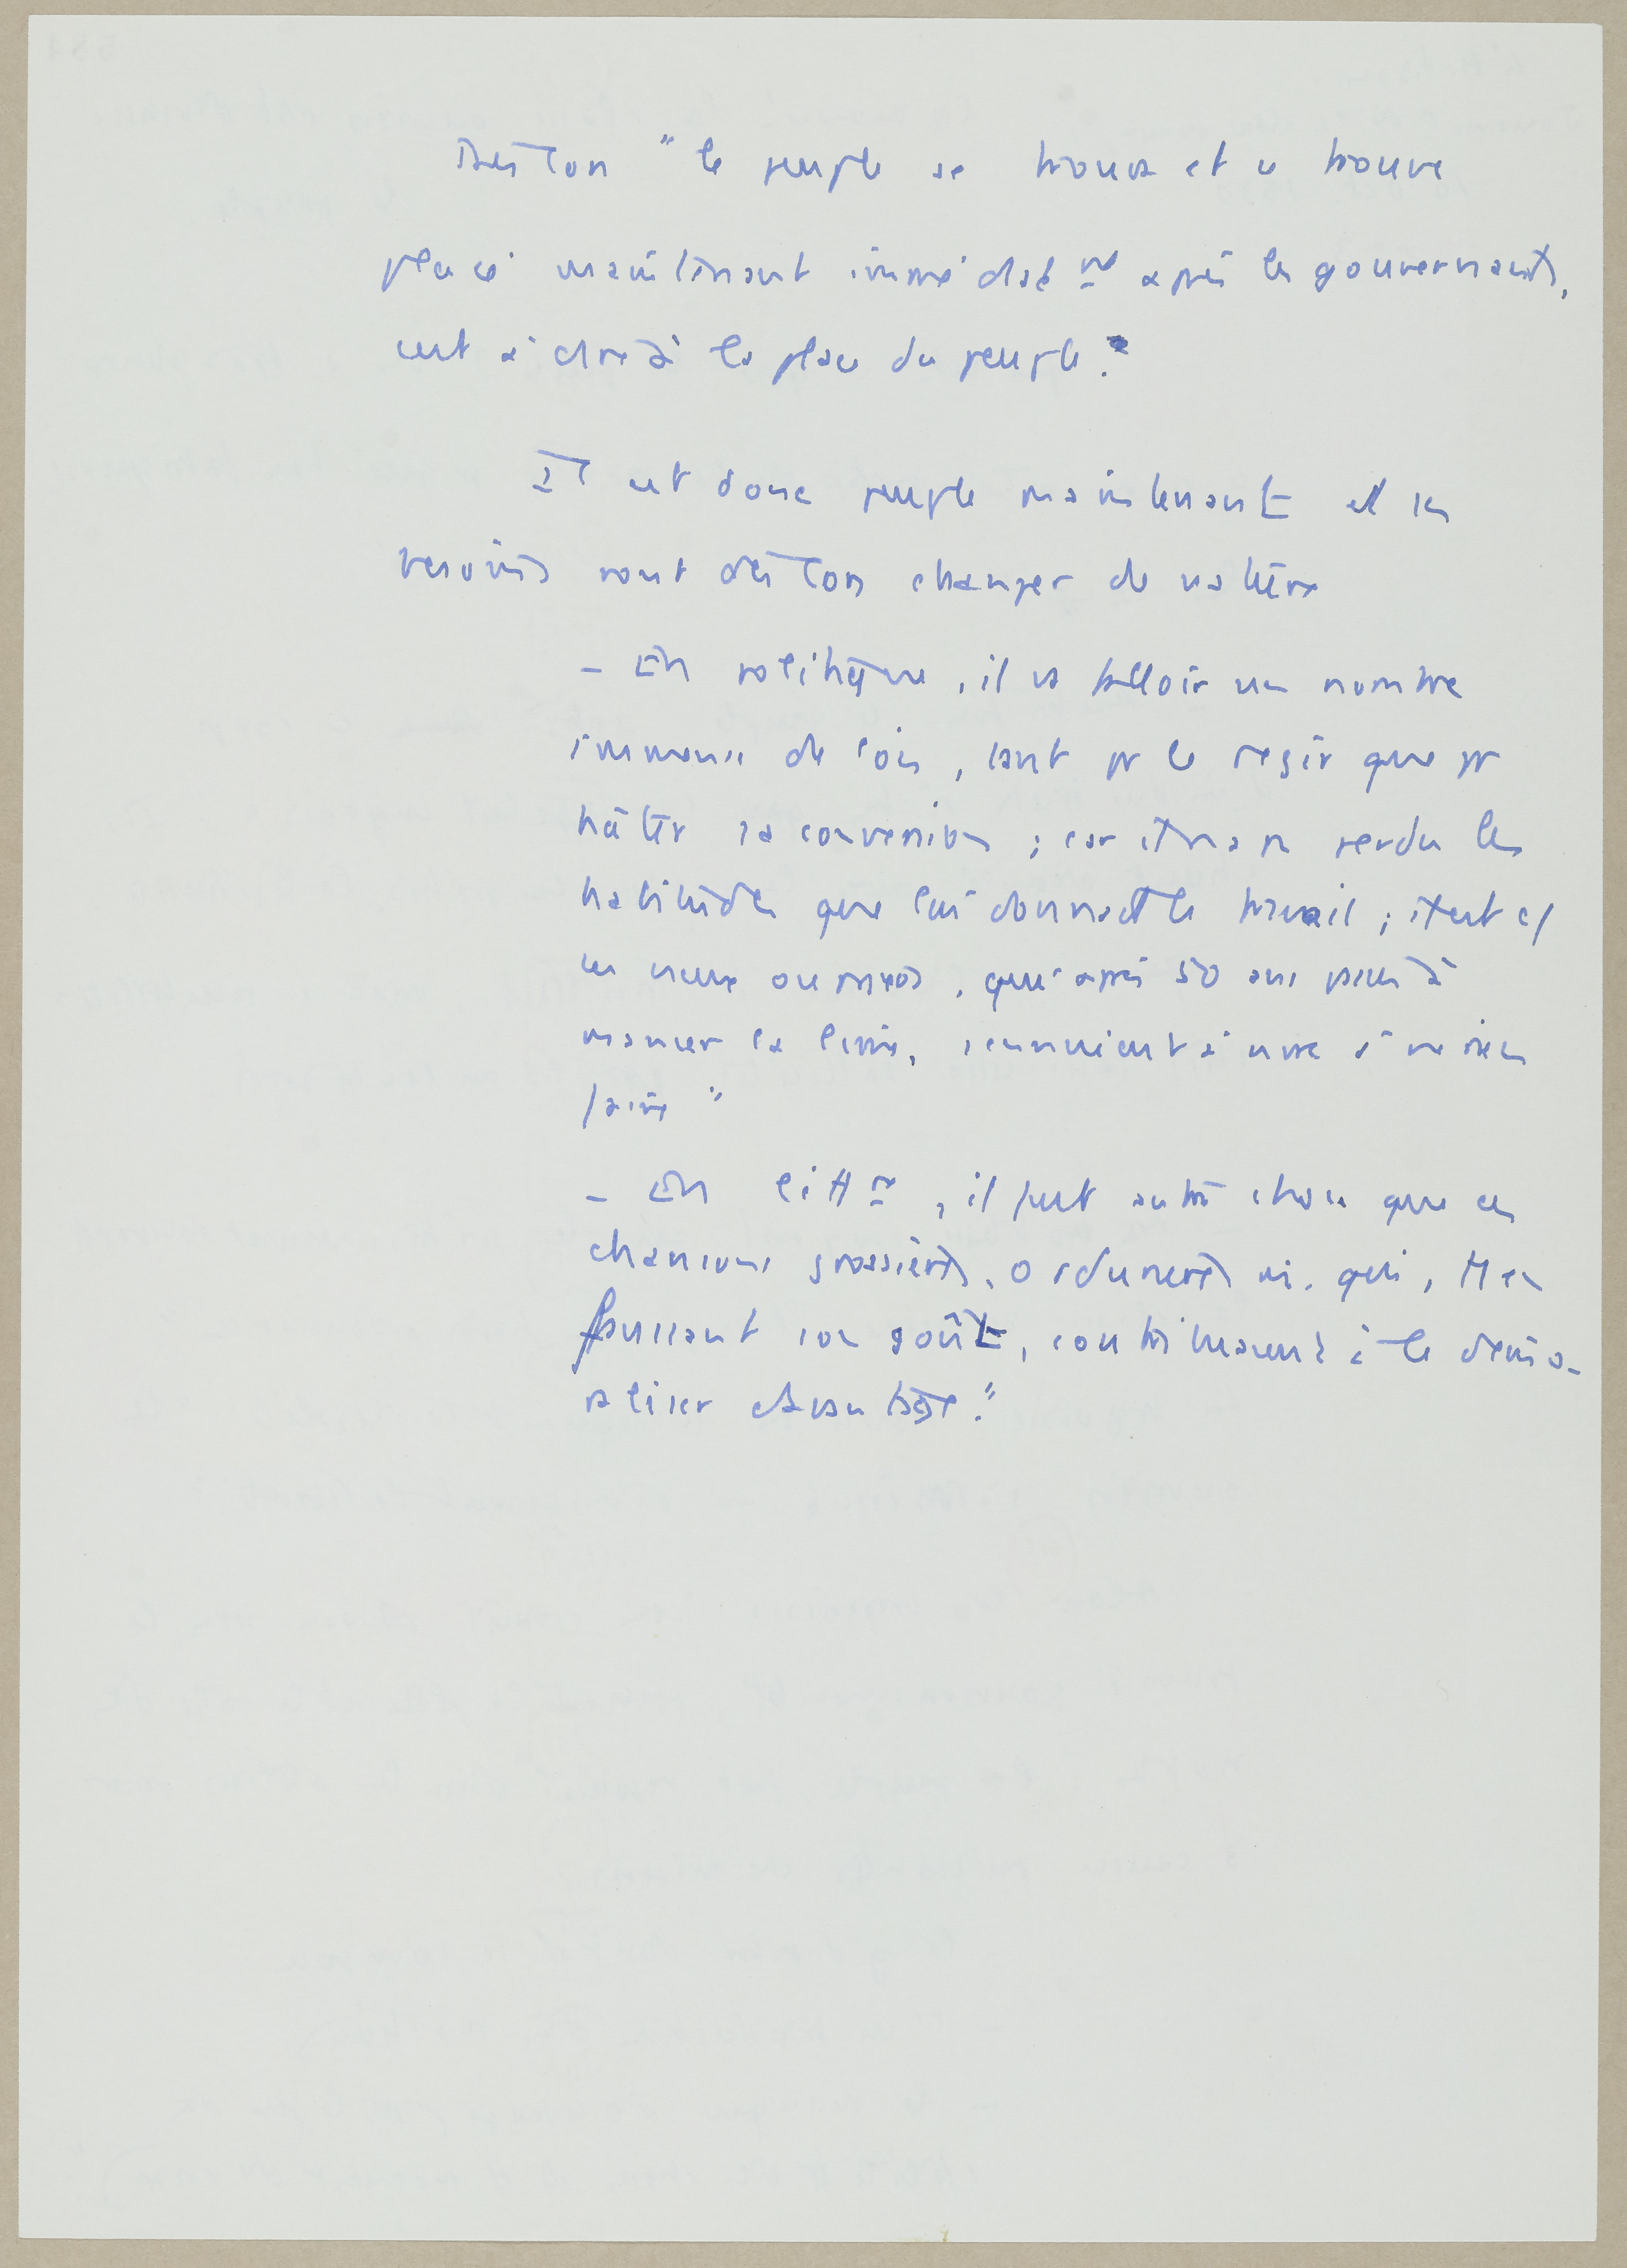 Dès lors "le peuple se trouva et se trouve
placé maintenant immédiat mt après les gouvernants,
c'est à dire à la place du peuple."
Il est donc peuple maintenant et ses
besoins vont dès lors changer de nature
- En politique, il va falloir un nombre
immense de lois, tant pr le régir que pr
hâter sa conversion ; car il n'a pas perdu les
habitudes que lui donnait le travail ; il est c/
ces vieux ouvriers, qui après 50 ans passés à
manier la lime, s'ennuient à vivre à ne rien
faire"
- En litt re, il faut autre chose que ces
chansons grossières, ordurières qui, en
faussant son goût, contribuaient à le démo-
raliser davantage."